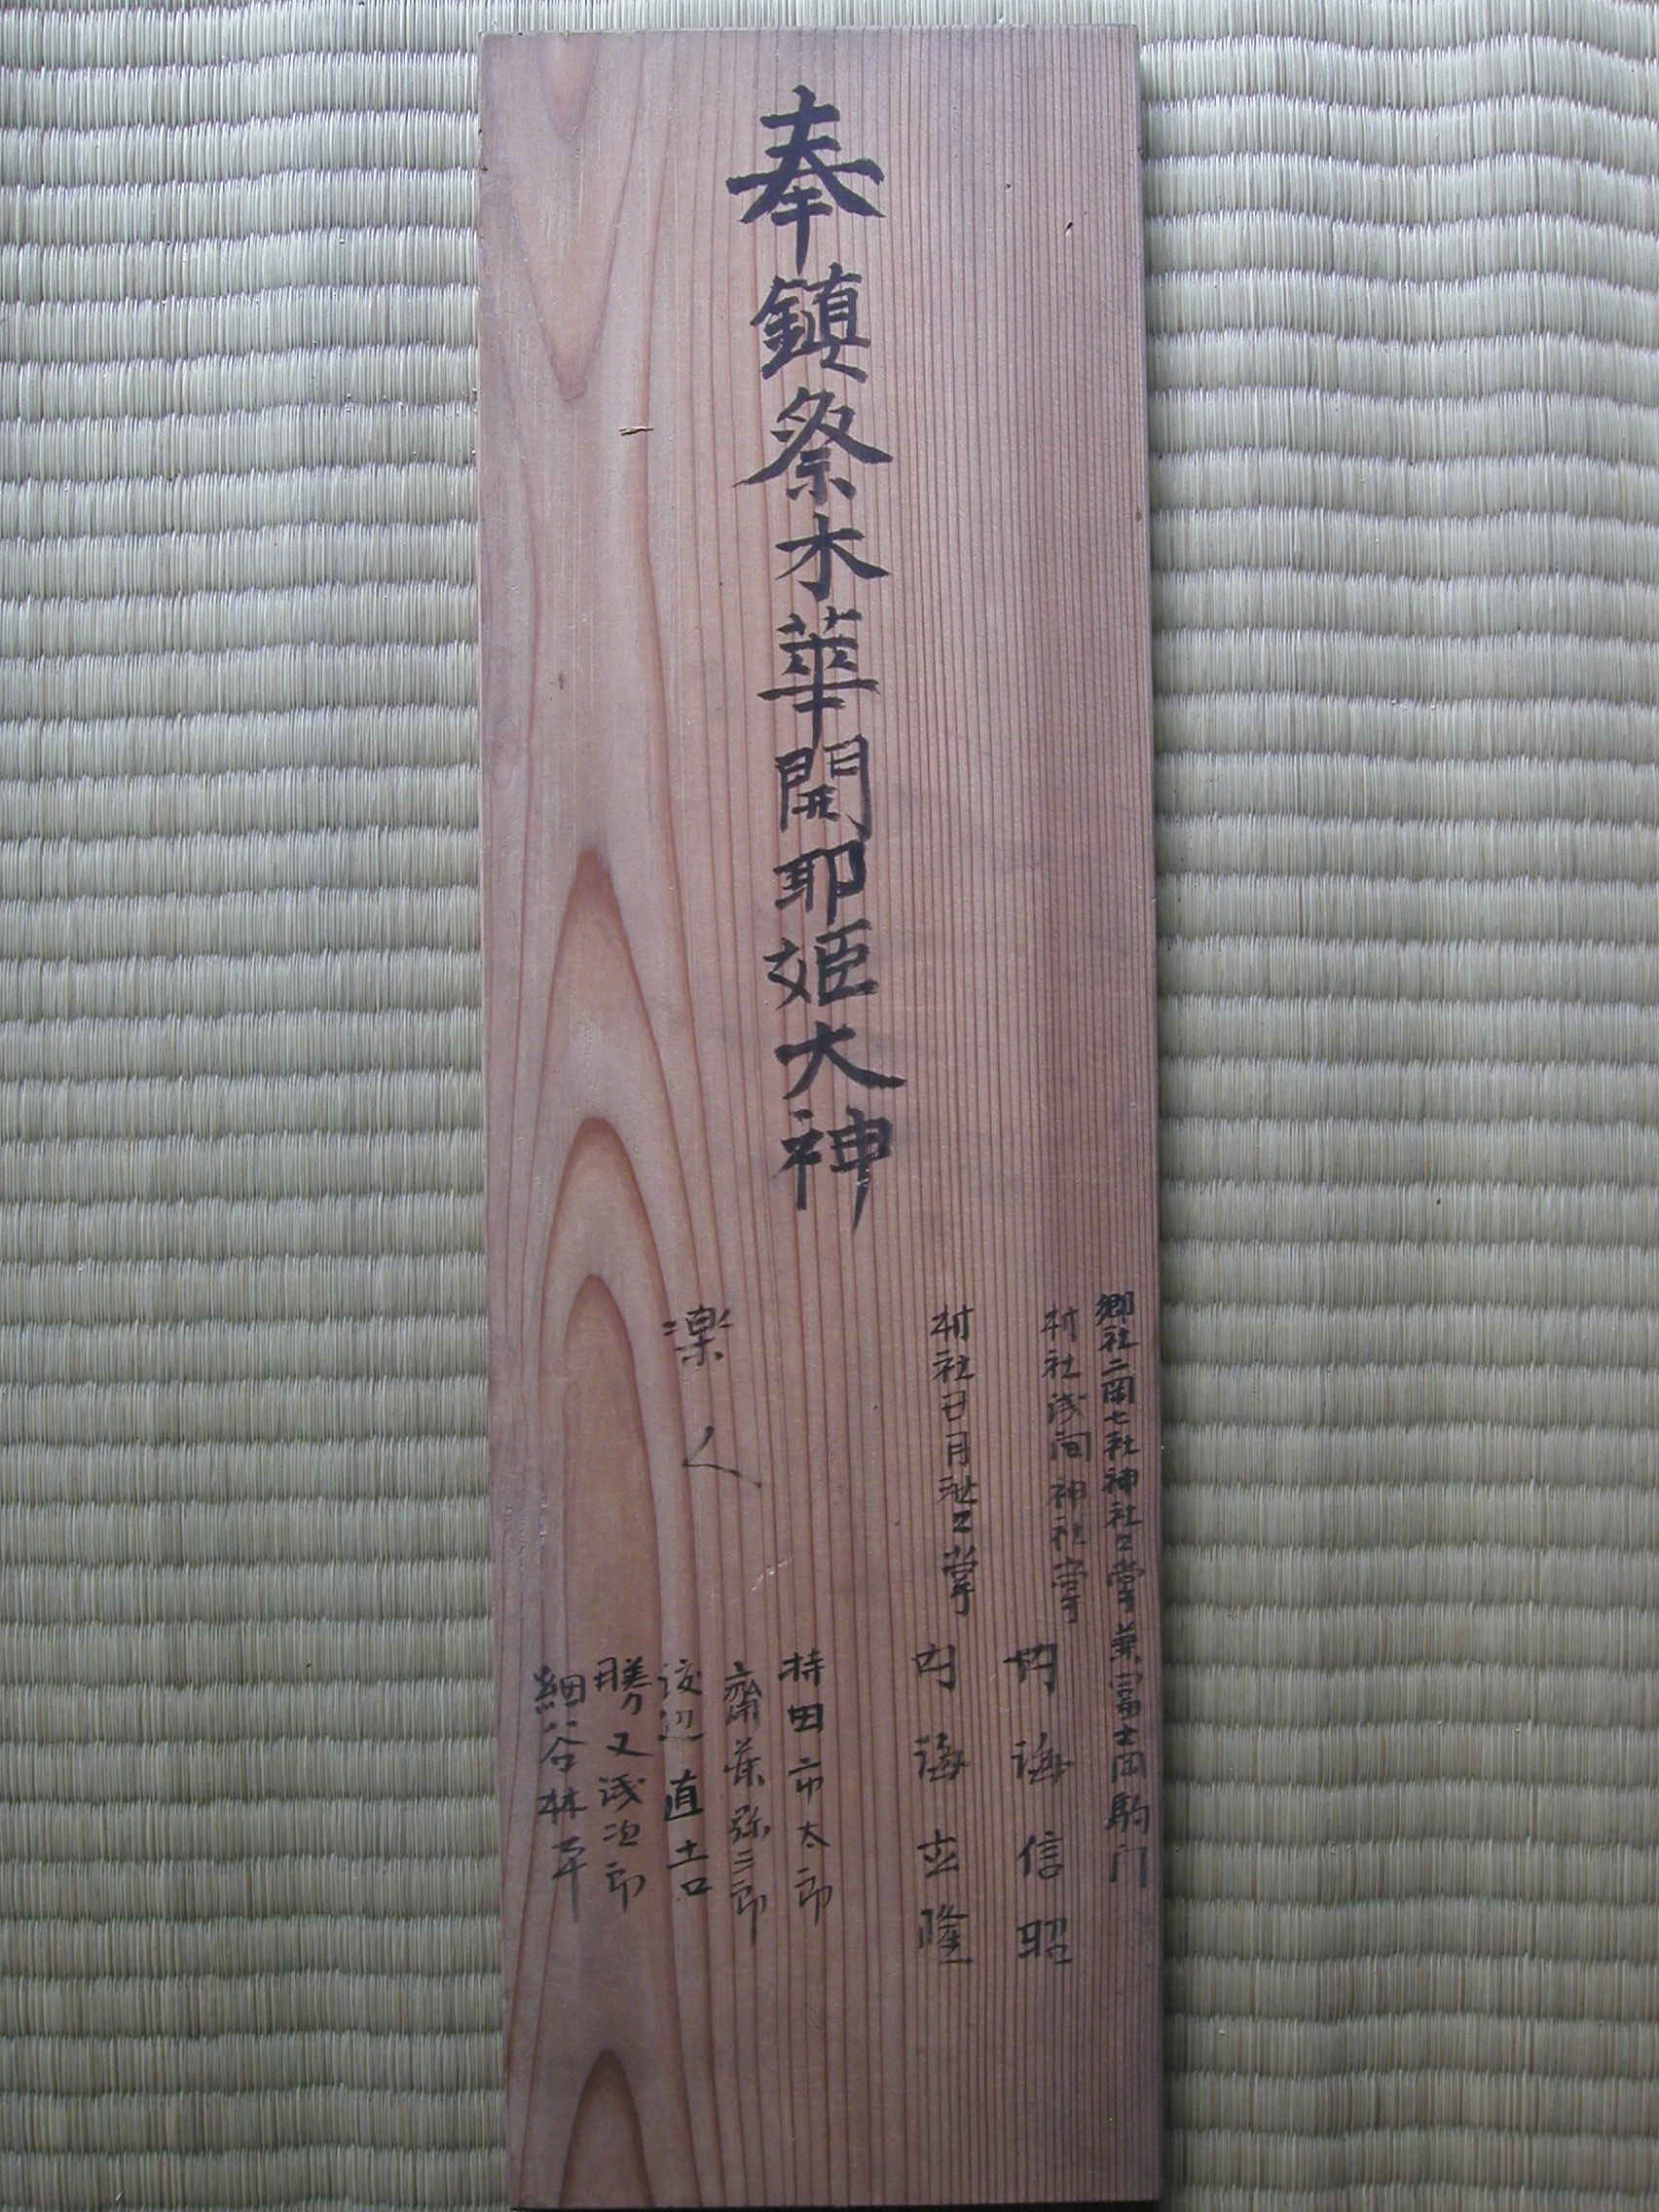 奉鎮祭木華開耶姫大神
郷社二岡七社神社々掌兼富士岡駒門
村社浅間神社掌
内海信昭
村社日月社々掌
内海立隆
楽人
持田市太郎
齋藤弥三郎
渡辺直吉
勝又浅次郎
細谷林平